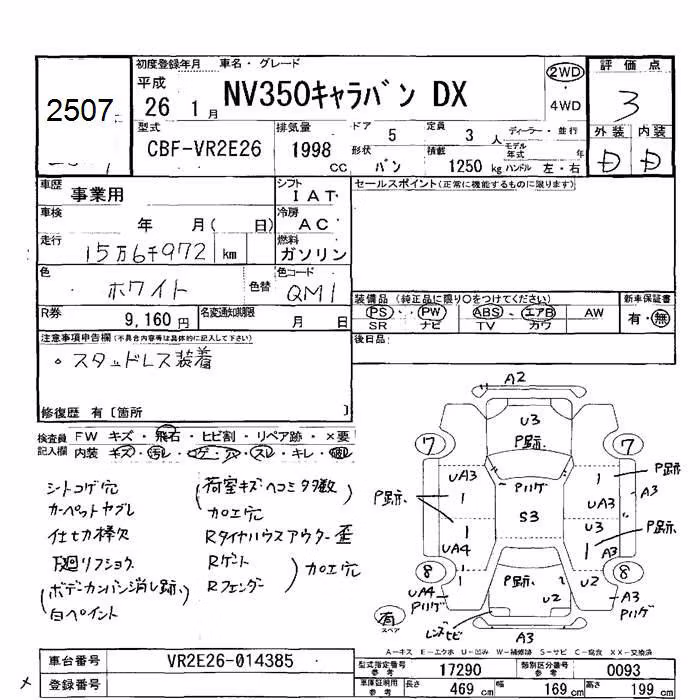 2507
初度登録年月 車名・グレード
平成
26 1月
NV350キャラバン DX
2WD
・
4WD
評価点
3
外装 内装
D D
型式
CBF-VR2E26
排気量
1998
CC
ドア 5
定員 3 人
ディーラー・並行
形状 バン
積載 1250 kg
モデル年式 年
ハンドル 左・右
車歴 事業用
シフト
IAT
セールスポイント(正常に機能するものに限ります)
車検
年 月( 日)
冷房
AC
走行
15万6千972 km
燃料
ガソリン
色
ホワイト
色替
色コード
QM1
装備品 (純正品に限り○をつけてください)
PS・PW ABS・エアB AW
SR ナビ TV カワ
新車保証書
有・無
R券
9,160円
名変通知期限
月 日
後日品:
注意事項申告欄(不具合内容等は具体的に記入して下さい)
・スタッドレス装着
修復歴 有〔箇所 〕
検査員記入欄
FW キズ・飛石・ヒビ割・リペア跡・×要
内装 キズ・汚レ・コゲ・穴・スレ・キレ・
シートコゲ穴
カーペットヤブレ
仕切カ棒欠
下廻リフショク
(ボデーカンバン消し跡)
白ペイント
(荷室キズヘコミ多数)
加工穴
Rタイヤハウスアウター歪
Rゲート
Rフェンダー
加工穴
A2
U3
P跡
7
7
UA3
1
Pハゲ
1
P跡
A3
P跡
UA3
1
S3
U3
P跡
UA4
1
A3
8
8
1
P跡
U2
U2
UA4
Pハゲ
A3
Pハゲ
有
スペア
レンズヒビ
A3
A-キズ E-エクボ U-凹み W-補修跡 S-サビ C-腐食 XX-交換済
車台番号 VR2E26-014385
登録番号
型式指定番号
参考
17290
類別区分番号
参考
0093
車庫証明用
参考
長さ 469 cm
幅 169 cm
高さ 199 cm